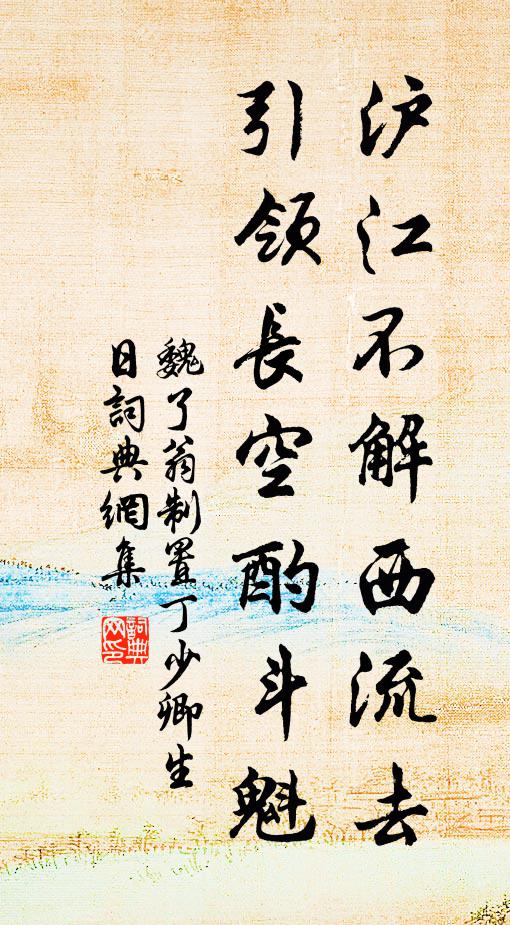 沪江不解西流去
引領長空酌斗魁
魏了翁制置丁少卿生
日詞典網集
詞典网印